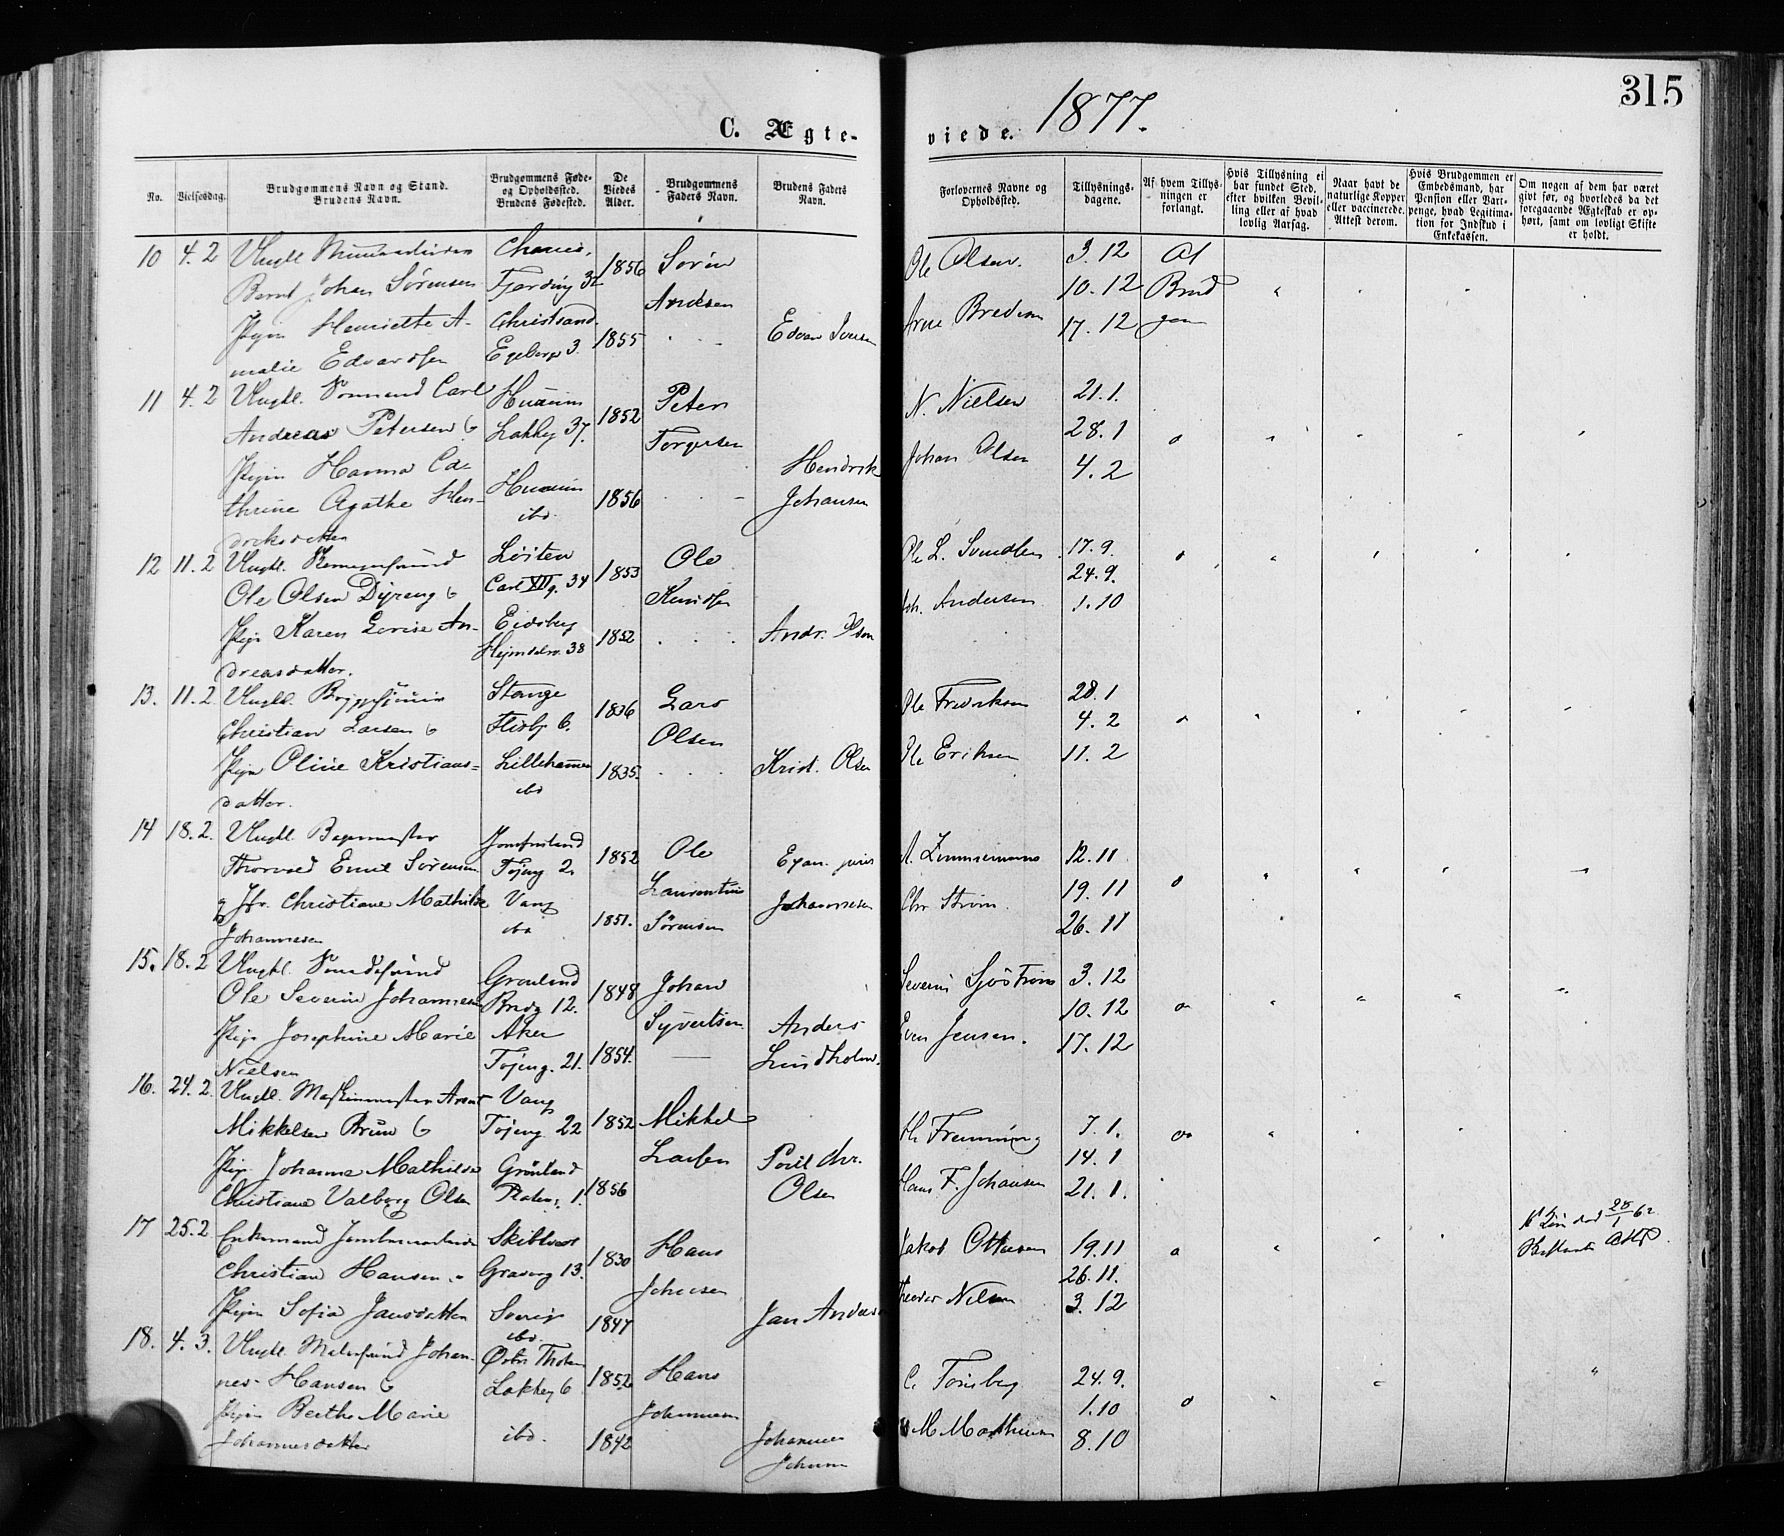 315
1877.
C. Ægte-
viede.
No.
Vielsesdag.
Brudgommens Navn og Stand.
Brudens Navn.
Brudgommens Føde-
og Opholdssted.
Brudens Fødested.
De
Viedes
Alder.
Brudgommens
Faders Navn.
Brudens Faders
Navn.
Forlovernes Navne og
Opholdssted.
Tillysnings-
dagene.
Af hvem Tillys-
ningen er
forlangt.
Hvis Tillysning ei
har fundet Sted,
efter hvilken Bevil-
ling eller af hvad
lovlig Aarsag.
Naar havt de
naturlige Kopper
eller vaccinerede.
Attest derom.
Hvis Brudgommen er
Embedsmand, har
Pension eller Vart-
penge, hvad Legitima-
tion for Indskud i
Enkekassen.
Om nogen af dem har været
givt før, og hvorledes da det
foregaaende Ægteskab er op-
hørt, samt om lovligt Skifte
er holdt.
10 4.2 Ungkl.
Bernt Johan Sørensen Fjerding 32 1856 Søren
Andsen
Pigen Henriette A- Christsand
malie Edvardsen Egeberg 3. 1855 Edvar Iversen
Ole Olsen. 3.12 Af
10.12 Brud
Arne Bredesen 17.12 gom
11 4.2 Ungkl. Carl
Andreas Petersen Lakkeg 37. 1852 Peter
Torgersen
Pigen Hanna Ca-
thrine Agathe Hen-
driksdatter ibd. 1856 Hendrik
Johansen
N. Nielsen 21.1.
28.1
Johan Olsen 4.2
12 11.2 Ungkl. Løiten
Ole Olsen Dyreng Carl XII g. 34 1853 Ole
Knudsen
Pigen Karen Lovise An- Eidsberg
dreasdatter. 38 1852 Andr. Olsen
Ole L. Svendsen 17.9.
24.9.
Joh. Andersen 1.10
13. 11.2. Ungkl. Stange
Christian Larsen 6. 1836 Lars
Olsen
Pigen Oline Kristians- Lillehammer
datter. ibd 1835. Krist. Olsen
Ole Fredriksen 28.1
4.2
Ole Eriksen 11.2
14 18.2. Ungkl. Bagermester
Thorvald Emil Sørensen Tøieng 2. 1852 Ole
Laurentius
Sørensen
g Jfr. Christiane Mathilde Vang
Johannesen ibd 1851. Exam. juris
Johannesen
A. Zimmermann 12.11
19.11
Chr Strøm. 26.11
15. 18.2 Ungkl. Grønland
Ole Severin Johannesen Brug 12. 1848 Johan
Syvertsen
Pigen Josephine Marie Aker
Nielsen Tøieng. 21. 1854. Anders
Lundholm.
Severin Sjøstrøm 3.12
10.12
Even Jensen. 17.12
16. 24.2. Ungkl. Maskinmester Arent Vang
Mikkelsen Bruun Tøieng 22 1852 Mikkel
Larsen
Pigen Johanna Mathilde Grønland
Christiane Valborg Olsen Platoug. 1. 1856 Poul Chr.
Olsen
7.1.
14.1
Hans F. Johansen 21.1.
17 25.2 Enkemand
Christian Hansen Graverg 13. 1830 Hans
Johnsen
Pigen Sofia Jansdatter Sverig
ibd. 1847 Jan Andersen
Jakob Ottesen 19.11
26.11.
Theodor Nilsen 3.12
18. 4.3. Ungkl. Malersvend Johan- Østre Thoten
nes Hansen Lakkeg 6 1852 Hans
Johannesen
Pigen Berthe Marie
Johannesdatter ibd. 1842 Johannes
Johnsen
C. Tønsberg 24.9.
1.10
M Mathiesen 8.10